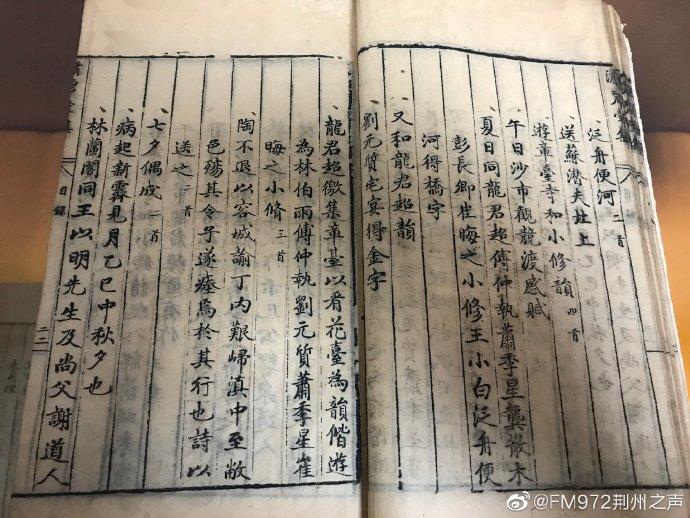 泛舟便河二首
送蘇潛夫北上
遊章臺寺和小修韻四首
午日沙市觀龍渡感賦
夏日同龍君超傅仲執蕭季星龔散木
彭長卿崔晦之小修王小白泛舟便
河得橋字
又和龍君超韻
劉元質宅宴得金字
龍君超徵集章臺以看花臺為韻偕遊
為林伯雨傅仲執劉元質蕭季星崔
晦之小脩三首
陶不退以容城諭丁內艱歸滇中至敝
邑殤其令子遂瘞焉於其行也詩以
送之一首
七夕偶成一首
病起新霽見月乙巳中秋夕也
林蘭閣同王以明先生及尚父謝道人
目錄
二二
@FM972荆州之声